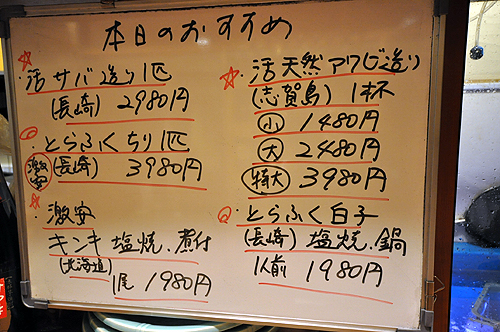 本日のおすすめ
☆活サバ造り1匹
(長崎) 2980円
とらふくちり1匹
激安 (長崎) 3980円
☆激安
キンキ塩焼、煮付
(北海道) 1尾 1980円
☆活天然アワビ造り
(志賀島) 1杯
小 1480円
大 2480円
特大 3980円
とらふく白子
(長崎) 塩焼、鍋
1人前 1980円